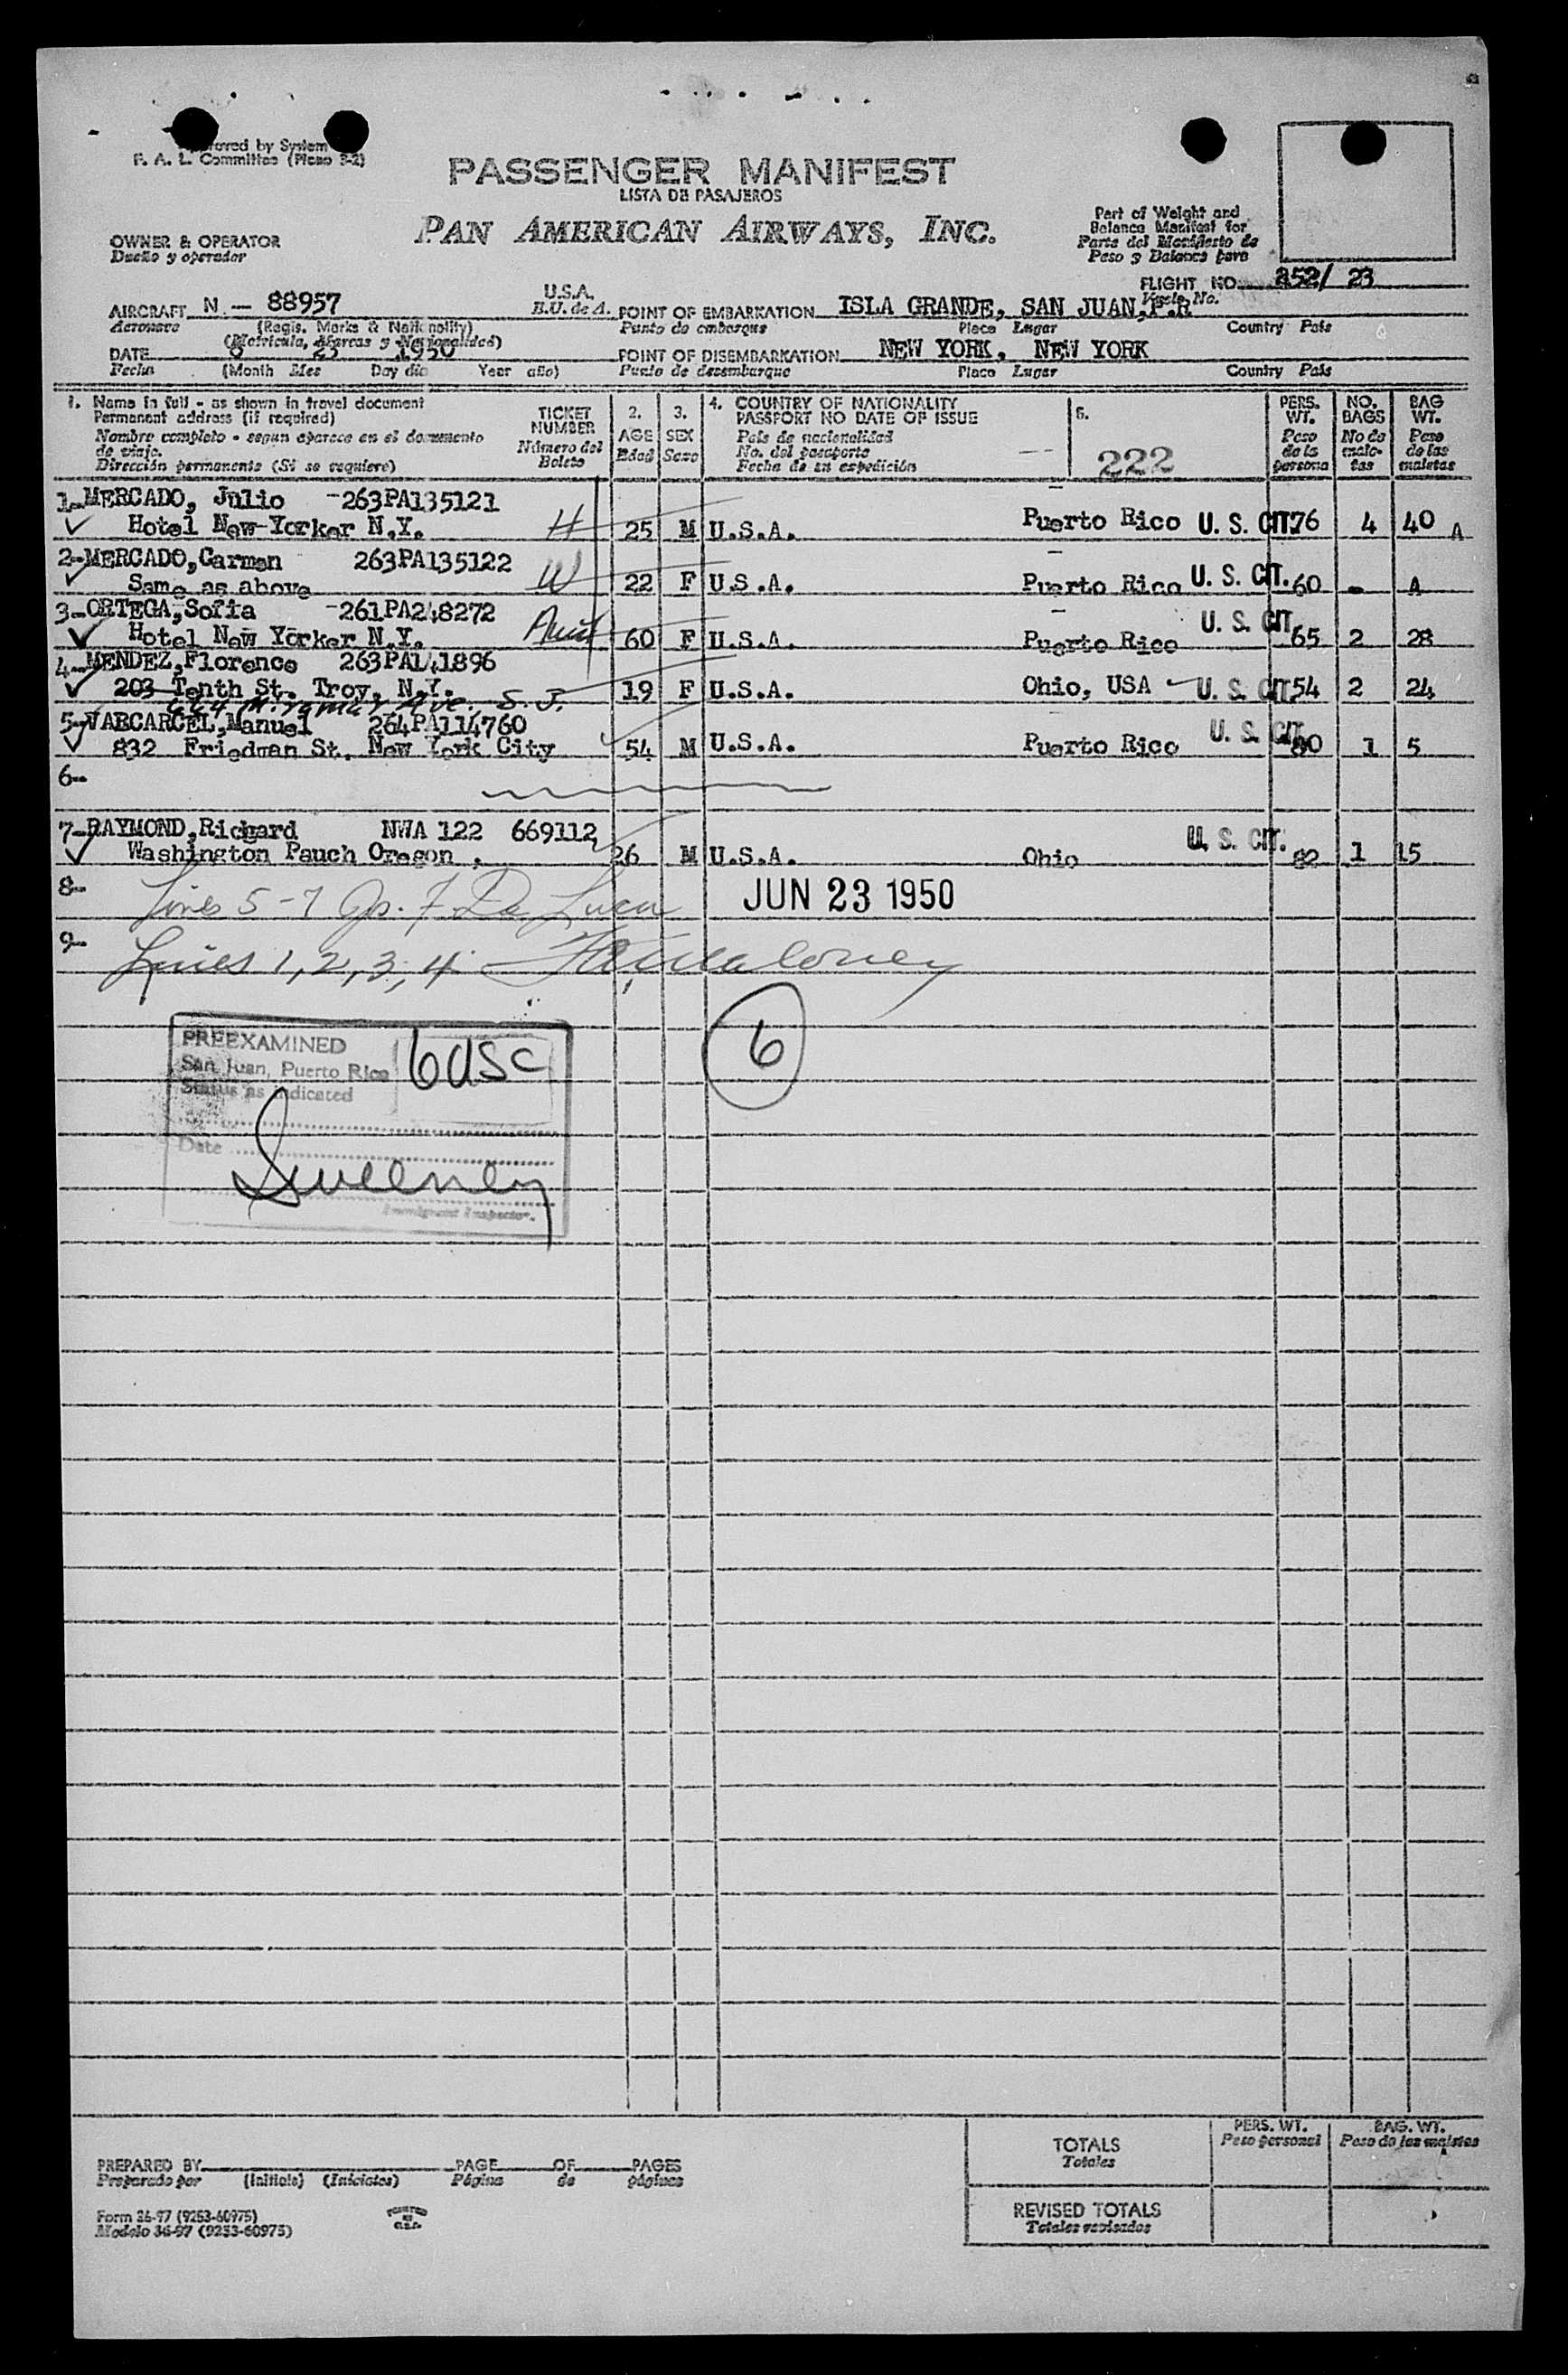 roved by System
F. A. L. Committee (Mexo 3-2)
PASSENGER MANIFEST
LISTA DE PASAJEROS
PAN AMERICAN AIRWAYS, INC.
OWNER & OPERATOR
Dueño y operador
Part of Weight and
Balance Manifest for
Parte del Manifiesto de
Peso y Balance para
FLIGHT NO. 252/ 23
Vuelo No.
AIRCRAFT N - 88957 U.S.A. POINT OF EMBARKATION ISLA GRANDE, SAN JUAN, P.R
Aeronave (Regis. Marks & Nationality) E.U. de A. Punto de embarque Place Lugar Country País
(Matrícula, Marcas y Nacionalidad)
DATE 6 23 1950 POINT OF DISEMBARKATION NEW YORK, NEW YORK
Fecha (Month Mes Day día Year año) Punto de desembarque Place Lugar Country País
1. Name in full - as shown in travel document
Permanent address (if required)
Nombre completo - segun aparece en el documento
de viaje.
Dirección permanente (Si se requiere)
TICKET
NUMBER
Número del
Boleto
2.
AGE
Edad
3.
SEX
Sexo
4. COUNTRY OF NATIONALITY
PASSPORT NO DATE OF ISSUE
País de nacionalidad
No. del pasaporte
Fecha de su expedición
222
PERS.
WT.
Peso
de la
persona
NO.
BAGS
No de
male-
tas
BAG
WT.
Peso
de las
maletas
1-MERCADO, Julio -263PA135121
Hotel New-Yorker N.Y. H 25 M U.S.A. Puerto Rico U. S. CIT. 76 4 40 A
2-MERCADO,Carmen 263PA135122
Same as above W 22 F U.S.A. Puerto Rico U. S. CIT. 60 - A
3-ORTEGA,Sofia -261PA248272
Hotel New Yorker N.Y. Aunt 60 F U.S.A. Puerto Rico U. S. CIT. 65 2 28
4-MENDEZ,Florence 263PA141896
203 Tenth St. Troy, N.Y. 19 F U.S.A. Ohio, USA U. S. CIT. 54 2 24
664 Miramar Ave., S. J.
5-VABCARCEL,Manuel 264PA114760
832 Friedman St. New York City 54 M U.S.A. Puerto Rico U. S. CIT. 80 1 5
6-
7-RAYMOND,Richard NWA 122 669112
Washington Pauch Oregon . 26 M U.S.A. Ohio U. S. CIT. 82 1 15
8- Lines 5-7 De Luca
JUN 23 1950
9- Lines 1, 2, 3, 4
PREEXAMINED
San Juan, Puerto Rico
Status as indicated
6 USC
Date
Sweeney
Immigrant Inspector.
6
PREPARED BY PAGE OF PAGES
Preparado por (Initials) (Iniciales) Página de páginas
Form 36-97 (9253-60975)
Modelo 36-97 (9253-60975)
PERS. WT.
Peso personal
BAG. WT.
Peso de las maletas
TOTALS
Totales
REVISED TOTALS
Totales revisados